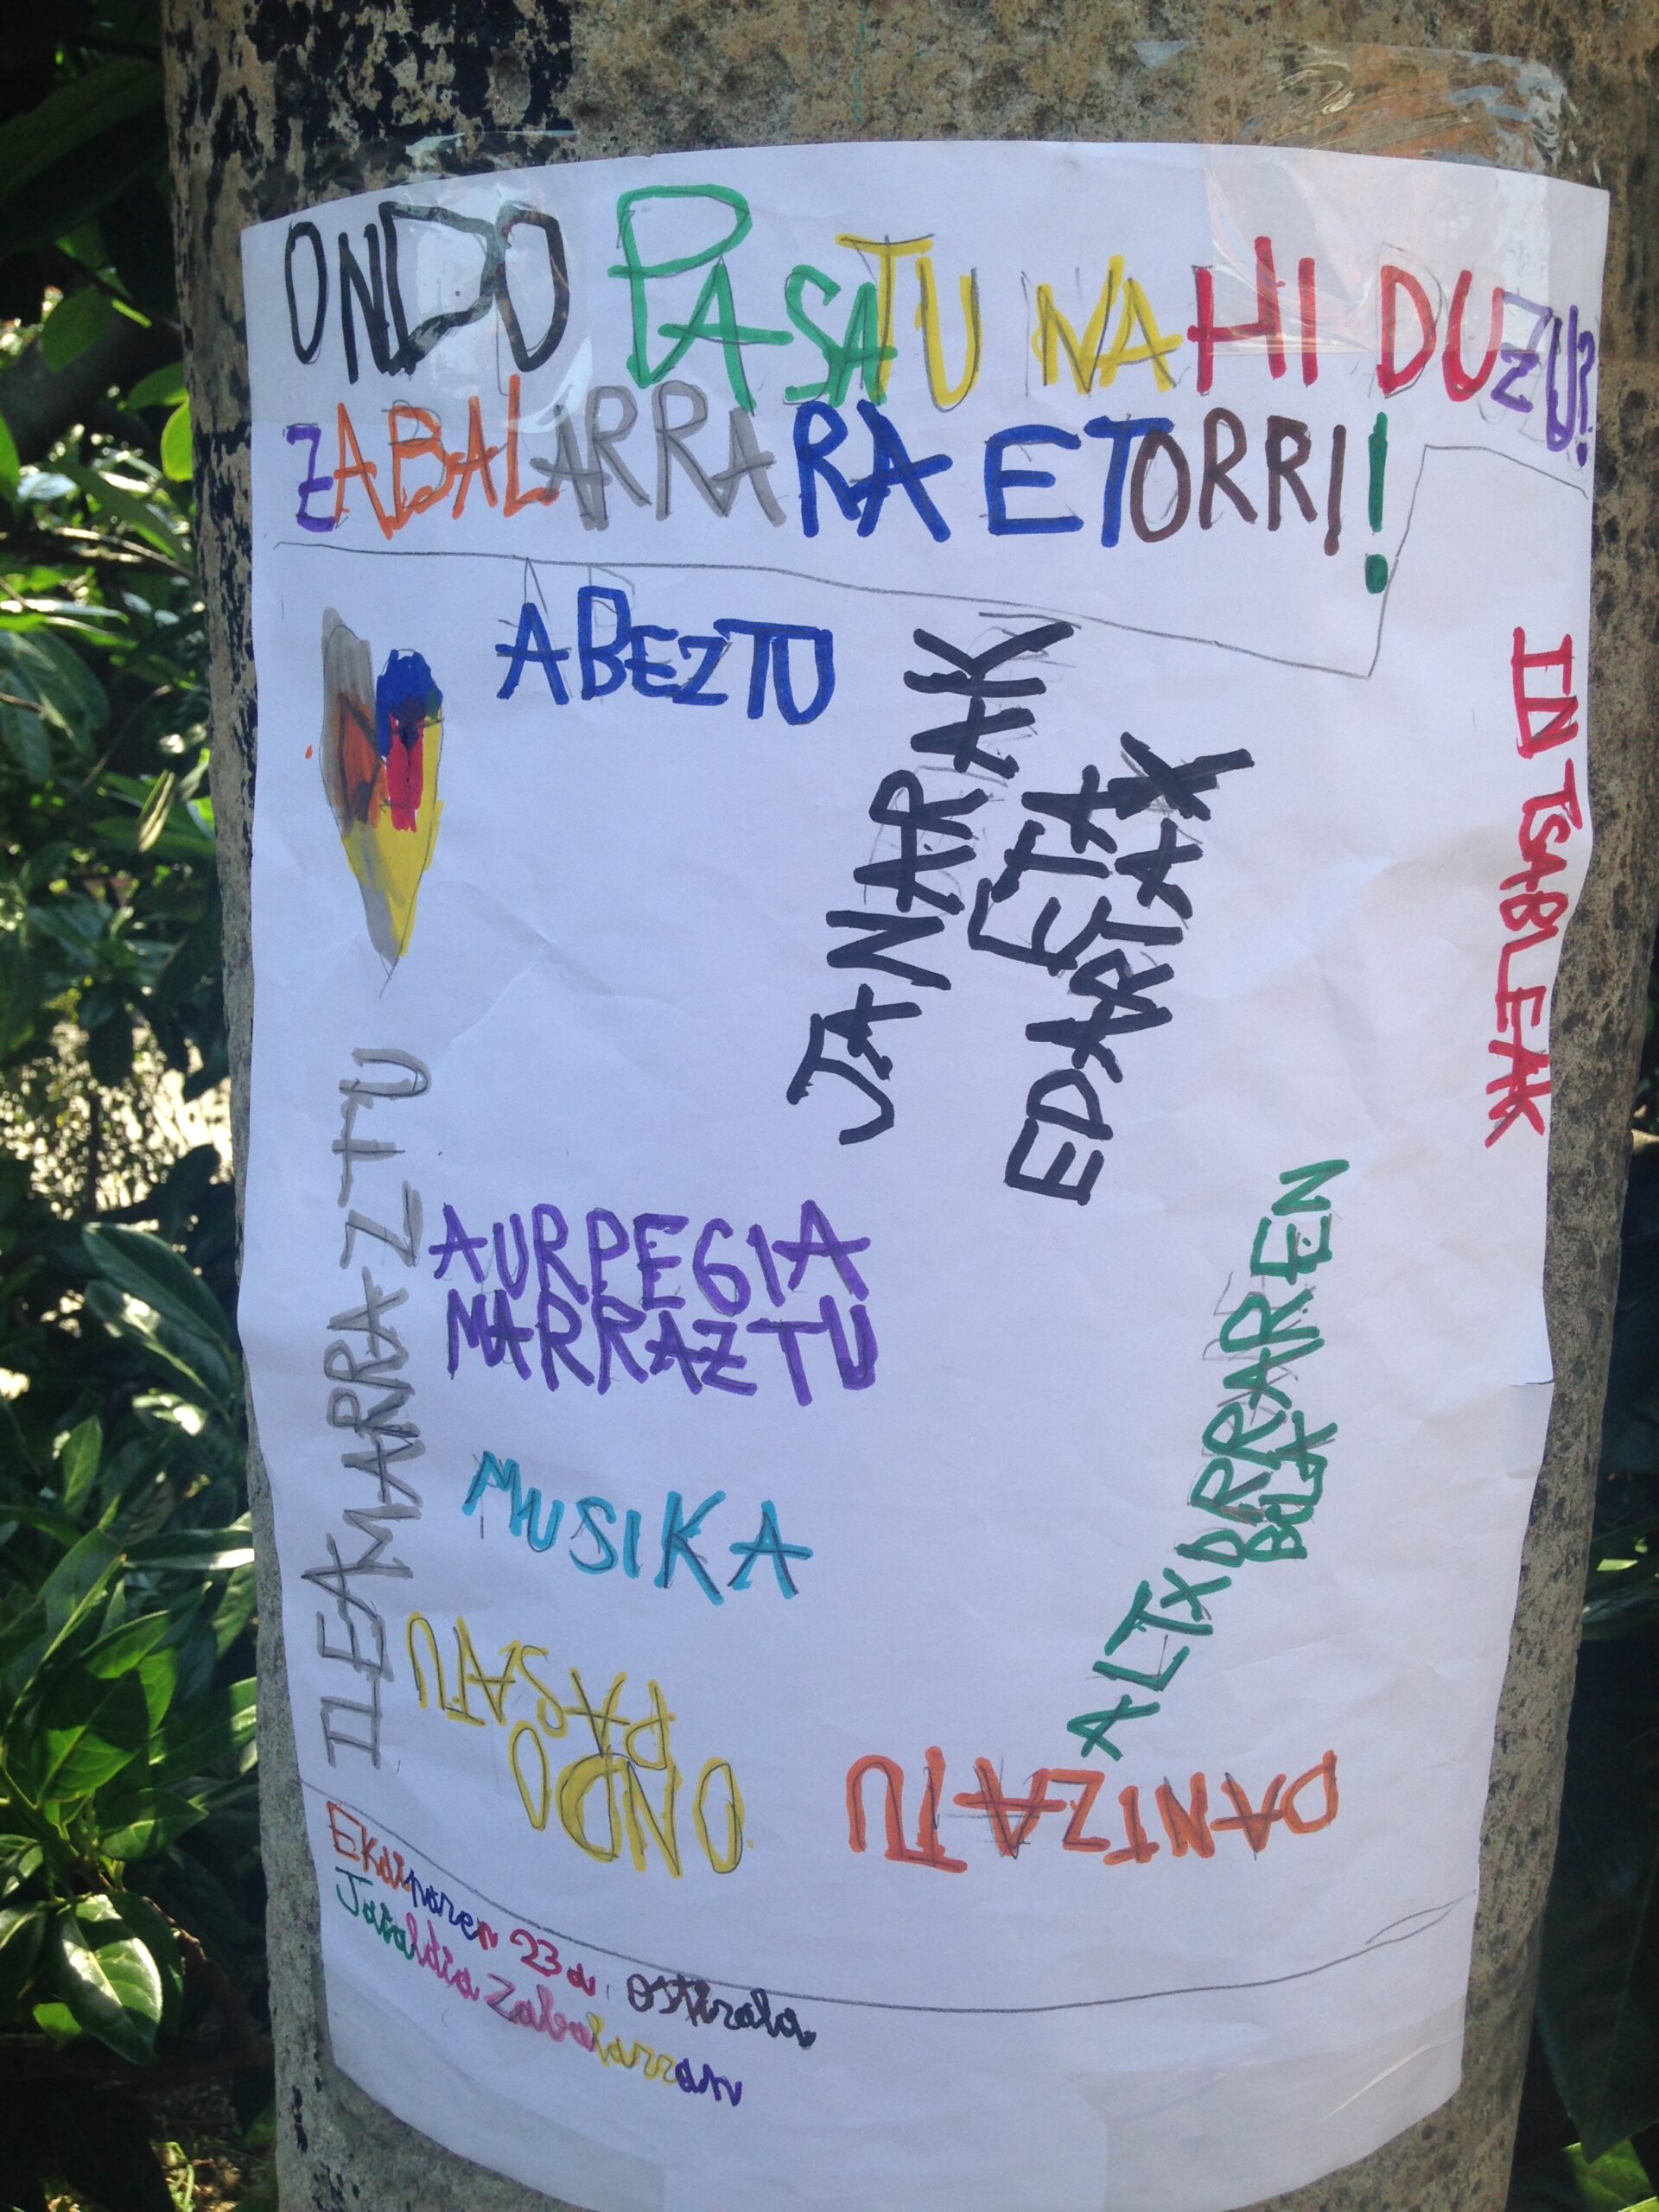 ONDO PASATU NAHI DUZU?
ZABALARRARA ETORRI!
ABEZTU
JANARAK
ETA
EDARIAK
INTSABLEAK
ILEA MARRAZTU
AURPEGIA
MARRAZTU
MUSIKA
ALTXORRAREN
BILA
ONDO
PASATU
DANTZATU
Ekainaren 23a, Ostirala
Jaialdia Zabalarran